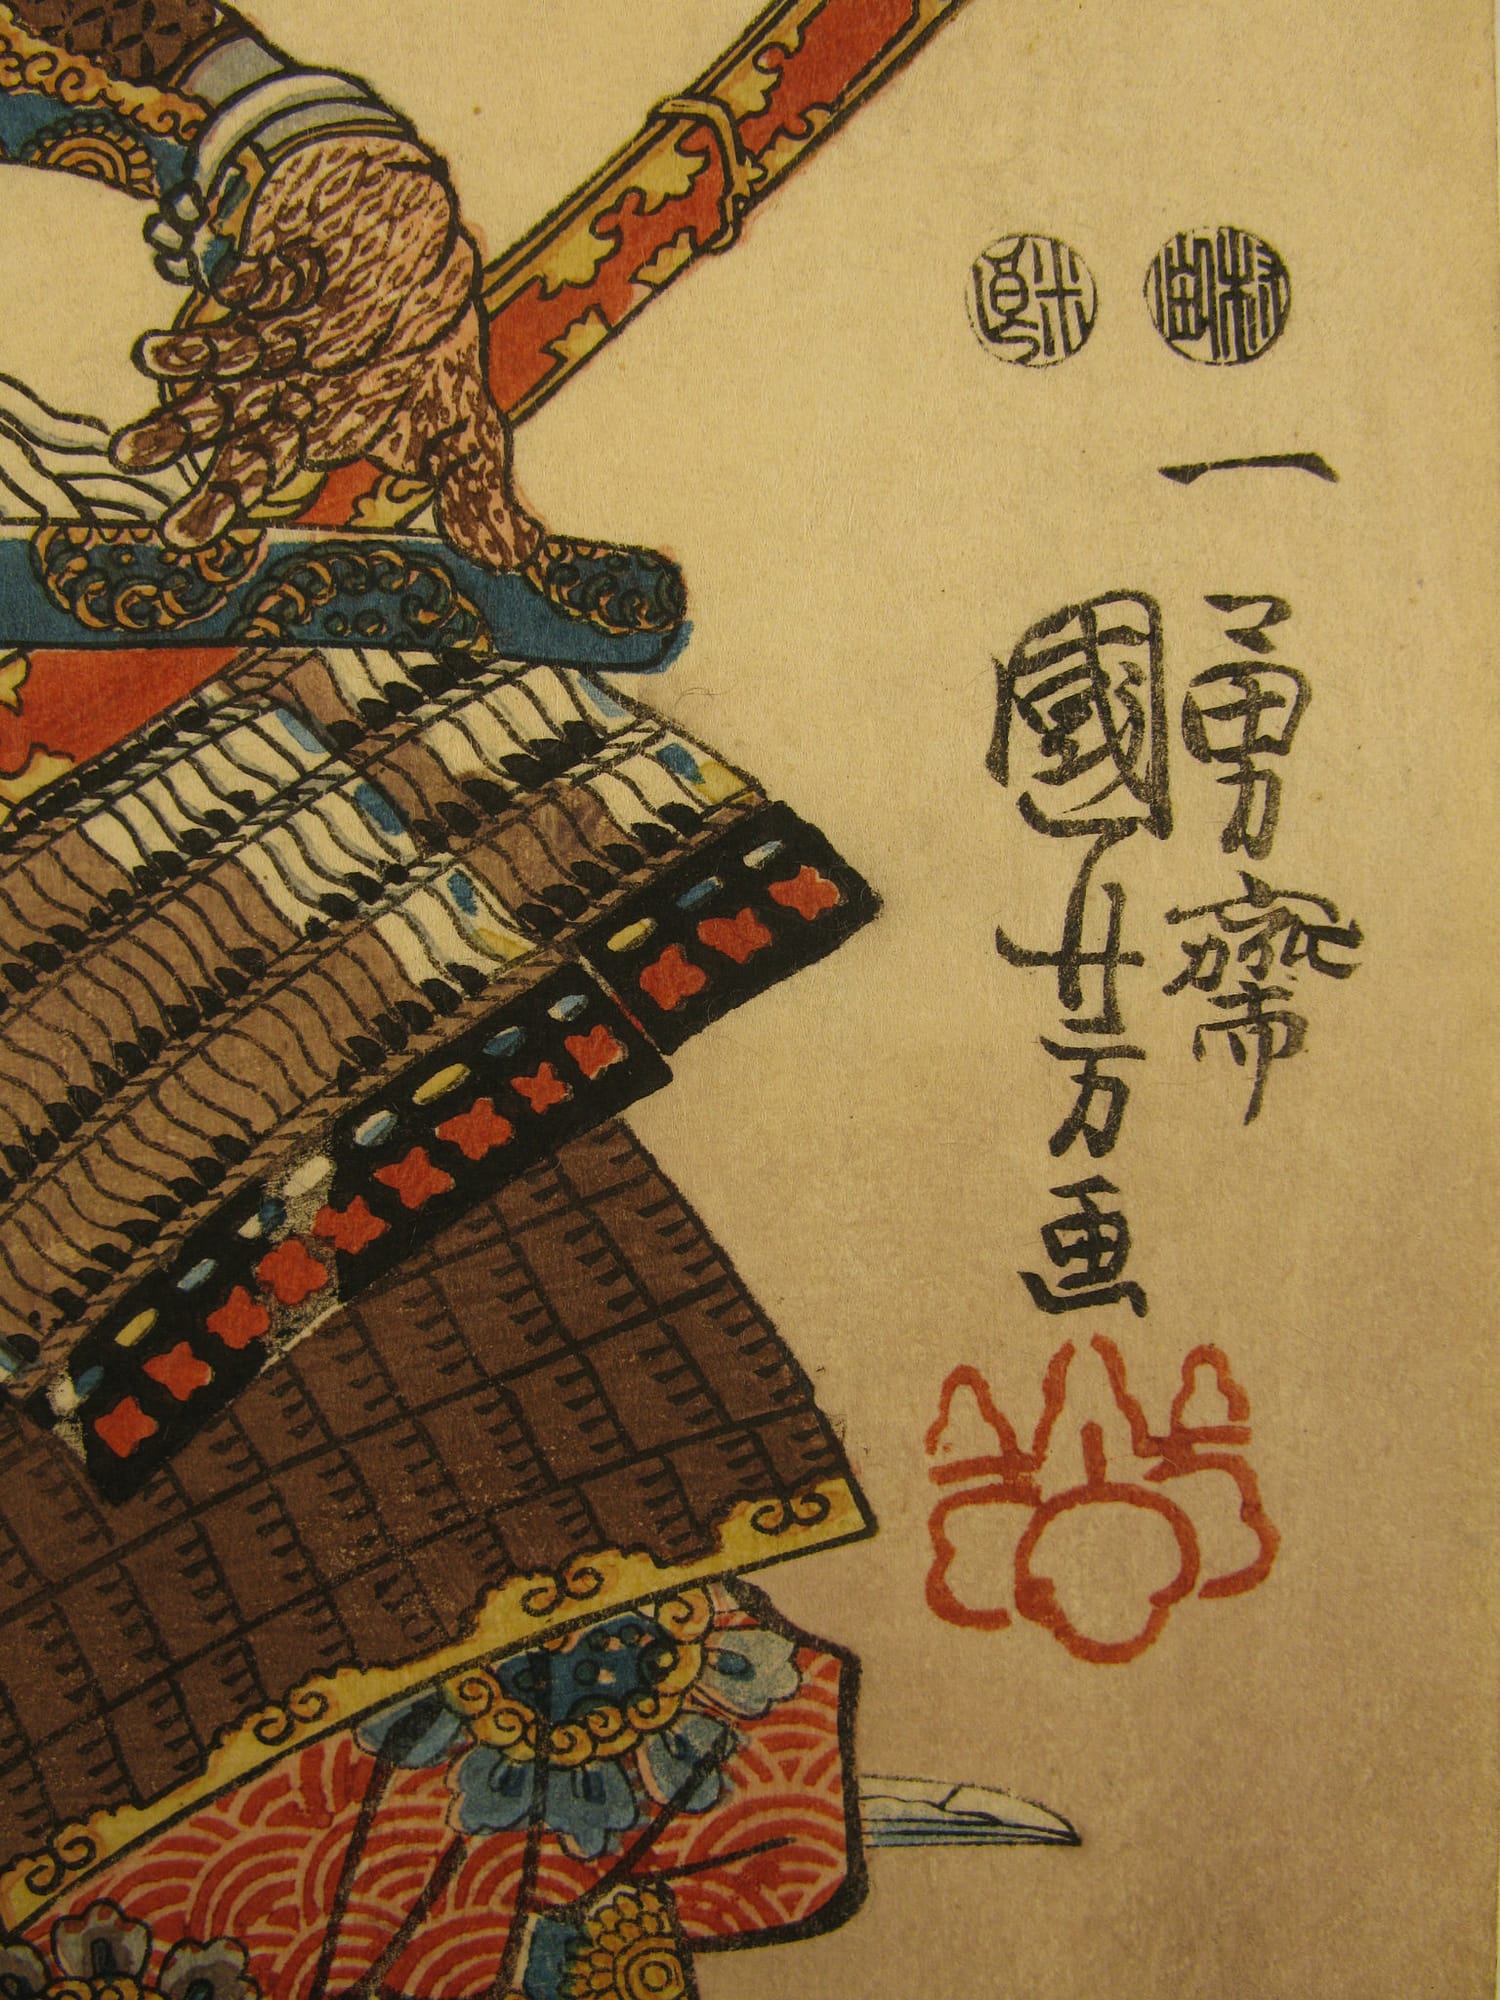 一勇齋
國芳画
村田
米良